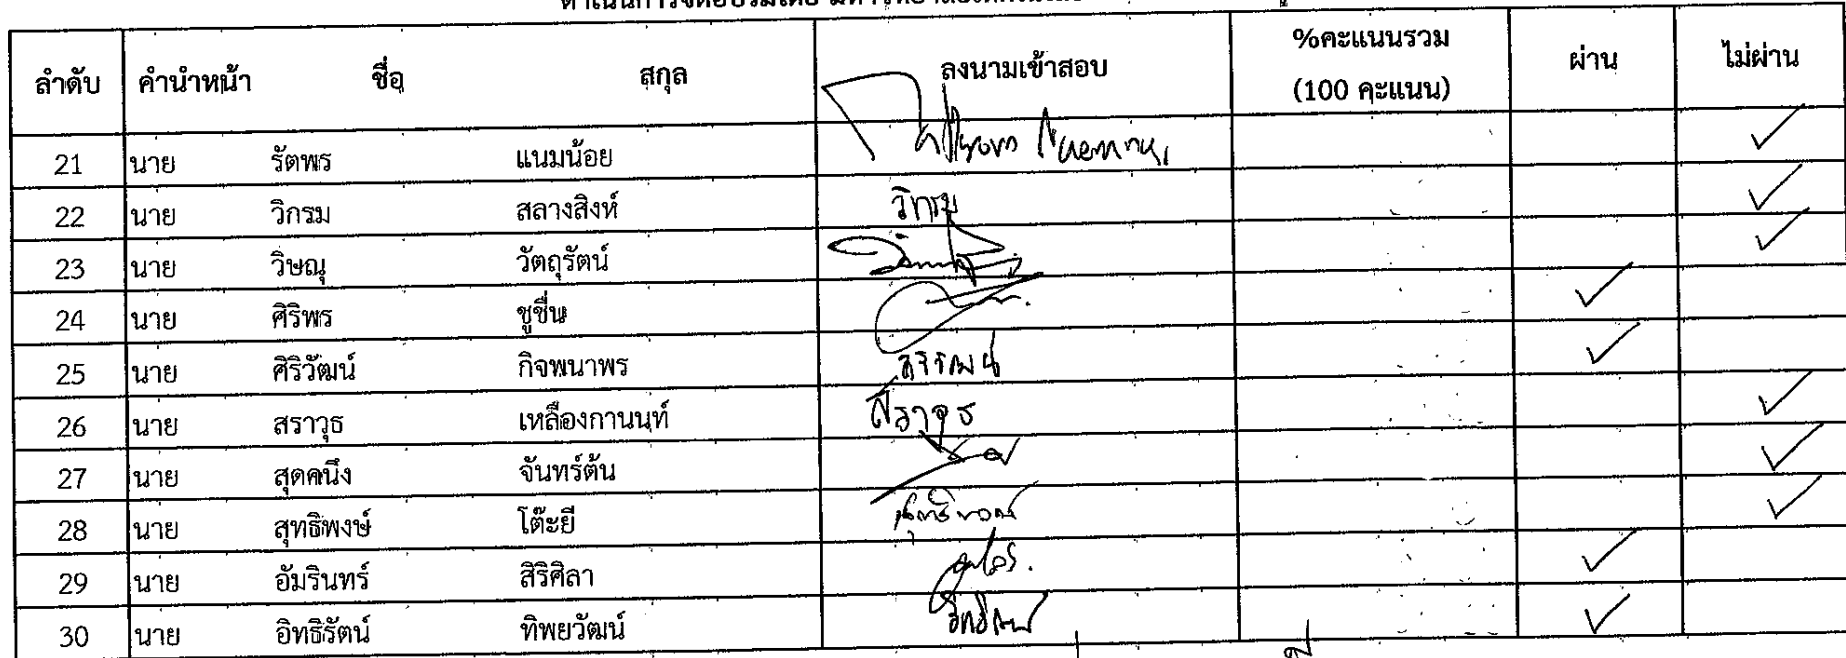 ลำดับ คำนำหน้า ชื่อ สกุล ลงนามเข้าสอบ %คะแนนรวม (100 คะแนน) ผ่าน ไม่ผ่าน
21 นาย รัตพร แนมน้อย ✓
22 นาย วิกรม สลางสิงห์ วิกรม ✓
23 นาย วิษณุ วัตถุรัตน์ ✓
24 นาย ศิริพร ชูชื่น ✓
25 นาย ศิริวัฒน์ กิจพนาพร ศิริวัฒน์ ✓
26 นาย สราวุธ เหลืองกานนท์ สราวุธ ✓
27 นาย สุดคนึง จันทร์ต้น ✓
28 นาย สุทธิพงษ์ โต๊ะยี สุทธิพงษ์ ✓
29 นาย อัมรินทร์ สิริศิลา ✓
30 นาย อิทธิรัตน์ ทิพยวัฒน์ ✓